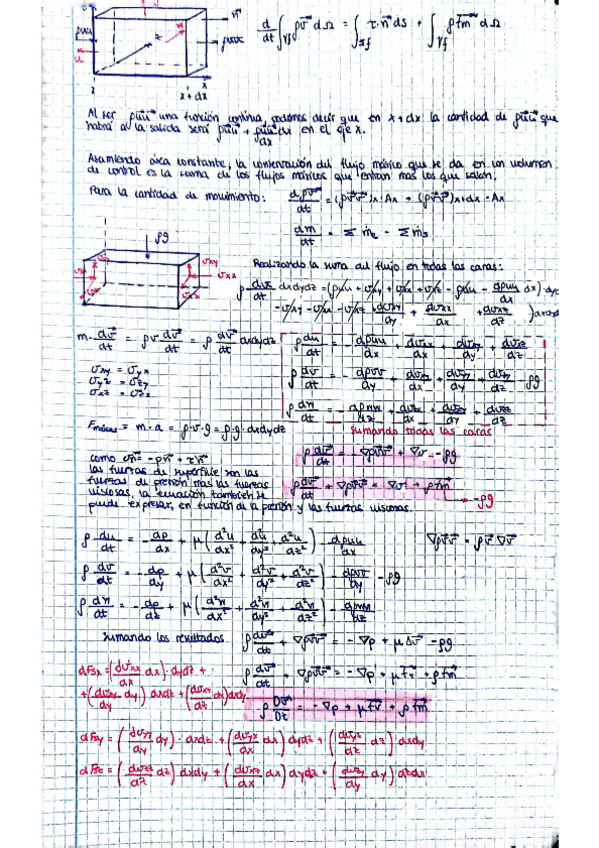 d/dt ∫Vf ρv⃗ dΩ = ∫Σf τ·n⃗ ds + ∫Vf ρf⃗m dΩ
ρuu
u
x
x+dx
Al ser ρuu⃗ una función continua, podemos decir que en x+dx la cantidad de ρuu⃗ que
habrá a la salida será ρuu⃗ + dρuu⃗/dx dx en el eje x.
Asumiendo área constante, la conservación del flujo másico que se da en un volumen
de control es la suma de los flujos másicos que entran mas los que salen.
Para la cantidad de movimiento: dρv⃗/dt = (ρv⃗v⃗)x·Ax + (ρv⃗v⃗)x+dx·Ax
dm/dt = Σ ṁe - Σ ṁs
ρg
σxy
σxx
Realizando la suma del flujo en todas las caras:
m·dv⃗/dt = ρv dv⃗/dt = ρ dv⃗/dt dxdydz
ρ du/dt = - dρuu/dx + dσxx/dx + dσxy/dy + dσxz/dz
σxy = σyx
σyz = σzy
σxz = σzx
Fmásicas = m·a = ρ·v·g = ρ·g·dxdydz
sumando todas las caras
ρ dv⃗/dt = - ∇ρv⃗v⃗ + ∇σ - ρg
como σn⃗ = -pn⃗ + τn⃗
las fuerzas de superficie son las
fuerzas de presión mas las fuerzas
viscosas, la ecuación también se
puede expresar, en función de la presión y las fuerzas viscosas.
ρ dv⃗/dt + ∇ρv⃗v⃗ = ∇σ + ρf⃗m
-ρg
ρ du/dt = - dp/dx + μ(d²u/dx² + d²u/dy² + d²u/dz²) - dρuu/dx
∇ρv⃗v⃗ = ρv⃗∇v⃗
ρ dv/dt = - dp/dy + μ(d²v/dx² + d²v/dy² + d²v/dz²) - dρvv/dy - ρg
ρ dw/dt = - dp/dz + μ(d²w/dx² + d²w/dy² + d²w/dz²) - dρww/dz
sumando los resultados ρ dv⃗/dt + ∇ρv⃗v⃗ = - ∇p + μΔv⃗ - ρg
ρ dv⃗/dt + ∇ρv⃗v⃗ = - ∇p + μf⃗v + ρf⃗m
dFsx = (dσxx/dx dx)·dydz +
+ (dσxy/dy dy) dxdz + (dσxz/dz dz) dxdy
ρ Dv⃗/Dt = - ∇p + μf⃗v + ρf⃗m
dFsy = (dσyy/dy dy)·dxdz + (dσyx/dx dx) dydz + (dσyz/dz dz) dxdy
dFsz = (dσzz/dz dz) dxdy + (dσxz/dx dx) dydz + (dσzy/dy dy) dzdx